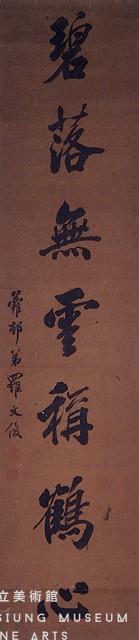 碧落無雲稱鶴心
蘿邨弟羅文俊
立美術館
SIUNG MUSEUM
NE ARTS